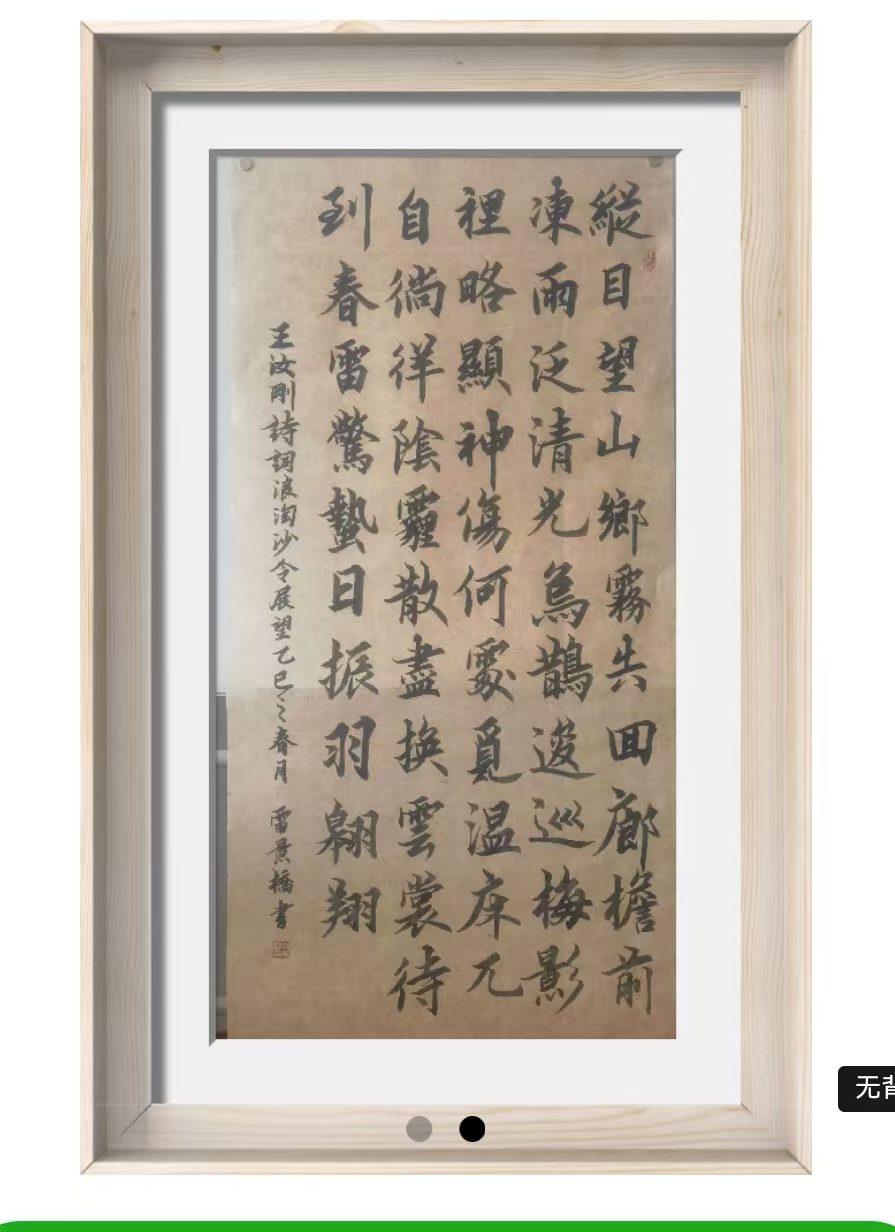 縱目望山鄉霧失囬廊檐前
凍雨泛清光烏鵲逡巡梅影
裡略顯神傷何處覓温床兀
自徜徉陰霾散盡換雲裳待
到春雷驚蟄日振羽翱翔
王汝剛詩詞浪淘沙令展望乙巳之春月 雷景橋書
无